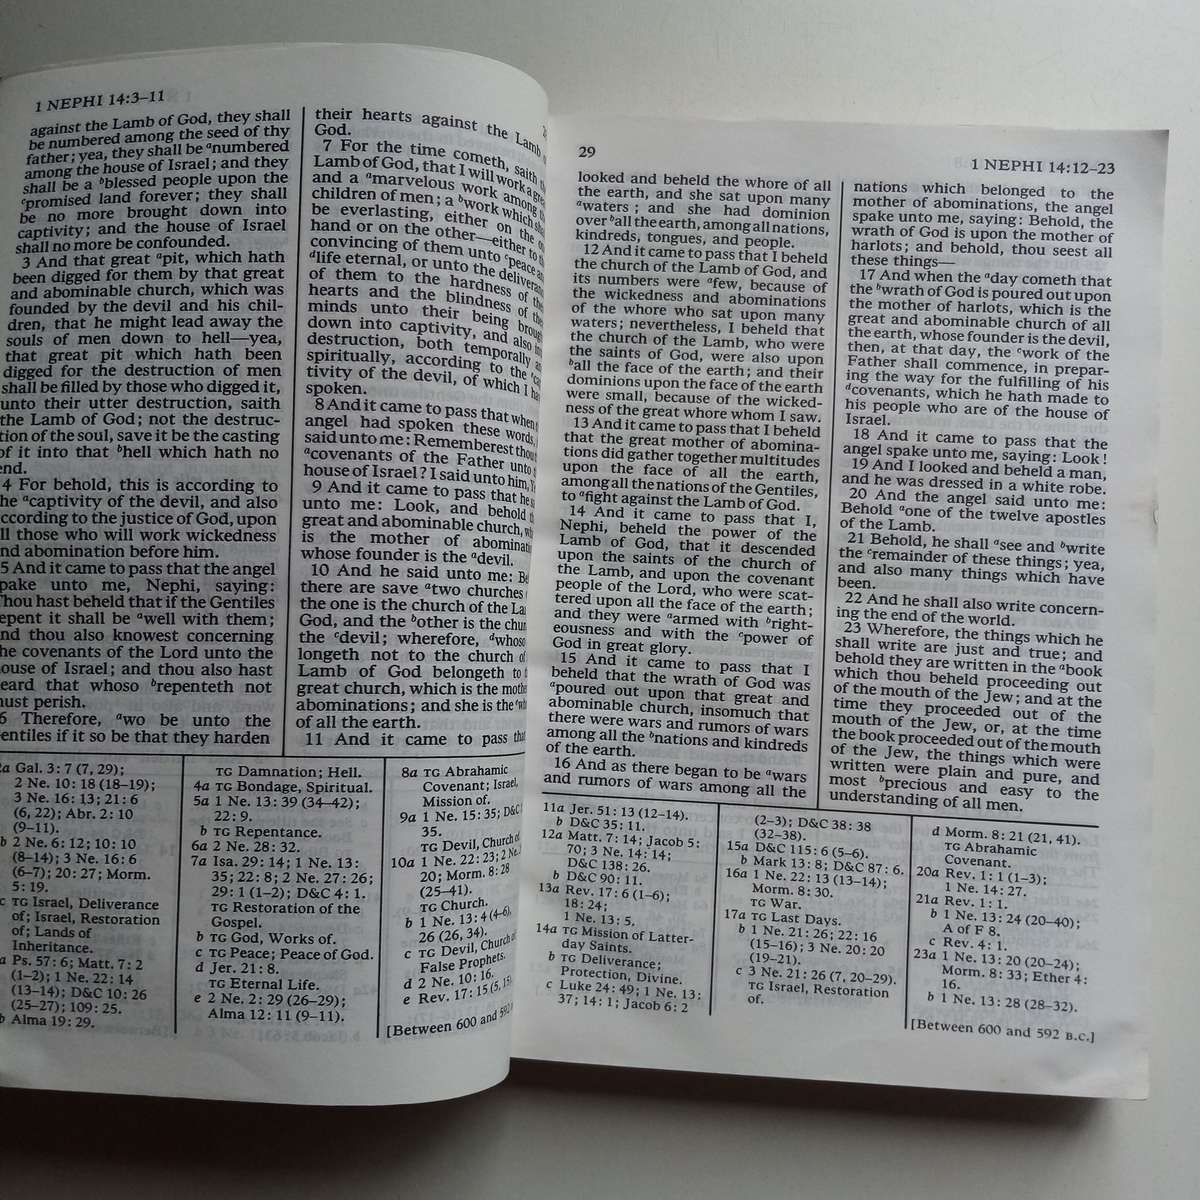 1 NEPHI 14:3–11
against the Lamb of God, they shall
be numbered among the seed of thy
father; yea, they shall be ᵃnumbered
among the house of Israel; and they
shall be a ᵇblessed people upon the
ᶜpromised land forever; they shall
be no more brought down into
captivity; and the house of Israel
shall no more be confounded.
3 And that great ᵃpit, which hath
been digged for them by that great
and abominable church, which was
founded by the devil and his chil-
dren, that he might lead away the
souls of men down to hell—yea,
that great pit which hath been
digged for the destruction of men
shall be filled by those who digged it,
unto their utter destruction, saith
the Lamb of God; not the destruc-
tion of the soul, save it be the casting
of it into that ᵇhell which hath no
end.
4 For behold, this is according to
the ᵃcaptivity of the devil, and also
ccording to the justice of God, upon
ll those who will work wickedness
nd abomination before him.
5 And it came to pass that the angel
pake unto me, Nephi, saying:
Thou hast beheld that if the Gentiles
epent it shall be ᵃwell with them;
nd thou also knowest concerning
he covenants of the Lord unto the
ouse of Israel; and thou also hast
eard that whoso ᵇrepenteth not
must perish.
6 Therefore, ᵃwo be unto the
entiles if it so be that they harden
their hearts against the Lamb
God.
7 For the time cometh, saith
Lamb of God, that I will work a
and a ᵃmarvelous work among
children of men; a ᵇwork which
be everlasting, either on the
hand or on the other—either to
convincing of them unto ᶜpeace
ᵈlife eternal, or unto the
of them to the hardness of
hearts and the blindness of
minds unto their being
down into captivity, and also
destruction, both temporally
spiritually, according to the
tivity of the devil, of which I
spoken.
8 And it came to pass that when
angel had spoken these words,
said unto me: Rememberest
ᵃcovenants of the Father unto
house of Israel? I said unto him,
9 And it came to pass that he
unto me: Look, and behold
great and abominable church,
is the mother of
whose founder is the ᵃdevil.
10 And he said unto me:
there are save ᵃtwo churches
the one is the church of the
God, and the ᵇother is the
the ᶜdevil; wherefore, ᵈwhoso
longeth not to the church
Lamb of God belongeth to
great church, which is the
abominations; and she is the
of all the earth.
11 And it came to pass
2a Gal. 3:7 (7, 29);
2 Ne. 10:18 (18–19);
3 Ne. 16:13; 21:6
(6, 22); Abr. 2:10
(9–11).
b 2 Ne. 6:12; 10:10
(8–14); 3 Ne. 16:6
(6–7); 20:27; Morm.
5:19.
c TG Israel, Deliverance
of; Israel, Restoration
of; Lands of
Inheritance.
a Ps. 57:6; Matt. 7:2
(1–2); 1 Ne. 22:14
(13–14); D&C 10:26
(25–27); 109:25.
b Alma 19:29.
TG Damnation; Hell.
4a TG Bondage, Spiritual.
5a 1 Ne. 13:39 (34–42);
22:9.
b TG Repentance.
6a 2 Ne. 28:32.
7a Isa. 29:14; 1 Ne. 13:
35; 22:8; 2 Ne. 27:26;
29:1 (1–2); D&C 4:1.
TG Restoration of the
Gospel.
b TG God, Works of.
c TG Peace; Peace of God.
d Jer. 21:8.
TG Eternal Life.
e 2 Ne. 2:29 (26–29);
Alma 12:11 (9–11).
8a TG Abrahamic
Covenant; Israel,
Mission of.
9a 1 Ne. 15:35; D&C
35.
TG Devil, Church of
10a 1 Ne. 22:23; 2 Ne.
20; Morm. 8:28
(25–41).
TG Church.
b 1 Ne. 13:4 (4–6),
26 (26, 34).
c TG Devil, Church of
False Prophets.
d 2 Ne. 10:16.
e Rev. 17:15 (5, 15)
[Between 600 and 592
29
1 NEPHI 14:12–23
looked and beheld the whore of all
the earth, and she sat upon many
ᵃwaters; and she had dominion
over ᵇall the earth, among all nations,
kindreds, tongues, and people.
12 And it came to pass that I beheld
the church of the Lamb of God, and
its numbers were ᵃfew, because of
the wickedness and abominations
of the whore who sat upon many
waters; nevertheless, I beheld that
the church of the Lamb, who were
the saints of God, were also upon
ᵇall the face of the earth; and their
dominions upon the face of the earth
were small, because of the wicked-
ness of the great whore whom I saw.
13 And it came to pass that I beheld
that the great mother of abomina-
tions did gather together multitudes
upon the face of all the earth,
among all the nations of the Gentiles,
to ᵃfight against the Lamb of God.
14 And it came to pass that I,
Nephi, beheld the power of the
Lamb of God, that it descended
upon the saints of the church of
the Lamb, and upon the covenant
people of the Lord, who were scat-
tered upon all the face of the earth;
and they were ᵃarmed with ᵇright-
eousness and with the ᶜpower of
God in great glory.
15 And it came to pass that I
beheld that the wrath of God was
ᵃpoured out upon that great and
abominable church, insomuch that
there were wars and rumors of wars
among all the ᵇnations and kindreds
of the earth.
16 And as there began to be ᵃwars
and rumors of wars among all the
nations which belonged to the
mother of abominations, the angel
spake unto me, saying: Behold, the
wrath of God is upon the mother of
harlots; and behold, thou seest all
these things—
17 And when the ᵃday cometh that
the ᵇwrath of God is poured out upon
the mother of harlots, which is the
great and abominable church of all
the earth, whose founder is the devil,
then, at that day, the ᶜwork of the
Father shall commence, in prepar-
ing the way for the fulfilling of his
ᵈcovenants, which he hath made to
his people who are of the house of
Israel.
18 And it came to pass that the
angel spake unto me, saying: Look!
19 And I looked and beheld a man,
and he was dressed in a white robe.
20 And the angel said unto me:
Behold ᵃone of the twelve apostles
of the Lamb.
21 Behold, he shall ᵃsee and ᵇwrite
the ᶜremainder of these things; yea,
and also many things which have
been.
22 And he shall also write concern-
ing the end of the world.
23 Wherefore, the things which he
shall write are just and true; and
behold they are written in the ᵃbook
which thou beheld proceeding out
of the mouth of the Jew; and at the
time they proceeded out of the
mouth of the Jew, or, at the time
the book proceeded out of the mouth
of the Jew, the things which were
written were plain and pure, and
most ᵇprecious and easy to the
understanding of all men.
11a Jer. 51:13 (12–14).
b D&C 35:11.
12a Matt. 7:14; Jacob 5:
70; 3 Ne. 14:14;
D&C 138:26.
b D&C 90:11.
13a Rev. 17:6 (1–6);
18:24;
1 Ne. 13:5.
14a TG Mission of Latter-
day Saints.
b TG Deliverance;
Protection, Divine.
c Luke 24:49; 1 Ne. 13:
37; 14:1; Jacob 6:2
(2–3); D&C 38:38
(32–38).
15a D&C 115:6 (5–6).
b Mark 13:8; D&C 87:6.
16a 1 Ne. 22:13 (13–14);
Morm. 8:30.
TG War.
17a TG Last Days.
b 1 Ne. 21:26; 22:16
(15–16); 3 Ne. 20:20
(19–21).
c 3 Ne. 21:26 (7, 20–29).
TG Israel, Restoration
of.
d Morm. 8:21 (21, 41).
TG Abrahamic
Covenant.
20a Rev. 1:1 (1–3);
1 Ne. 14:27.
21a Rev. 1:1.
b 1 Ne. 13:24 (20–40);
A of F 8.
c Rev. 4:1.
23a 1 Ne. 13:20 (20–24);
Morm. 8:33; Ether 4:
16.
b 1 Ne. 13:28 (28–32).
[Between 600 and 592 B.C.]